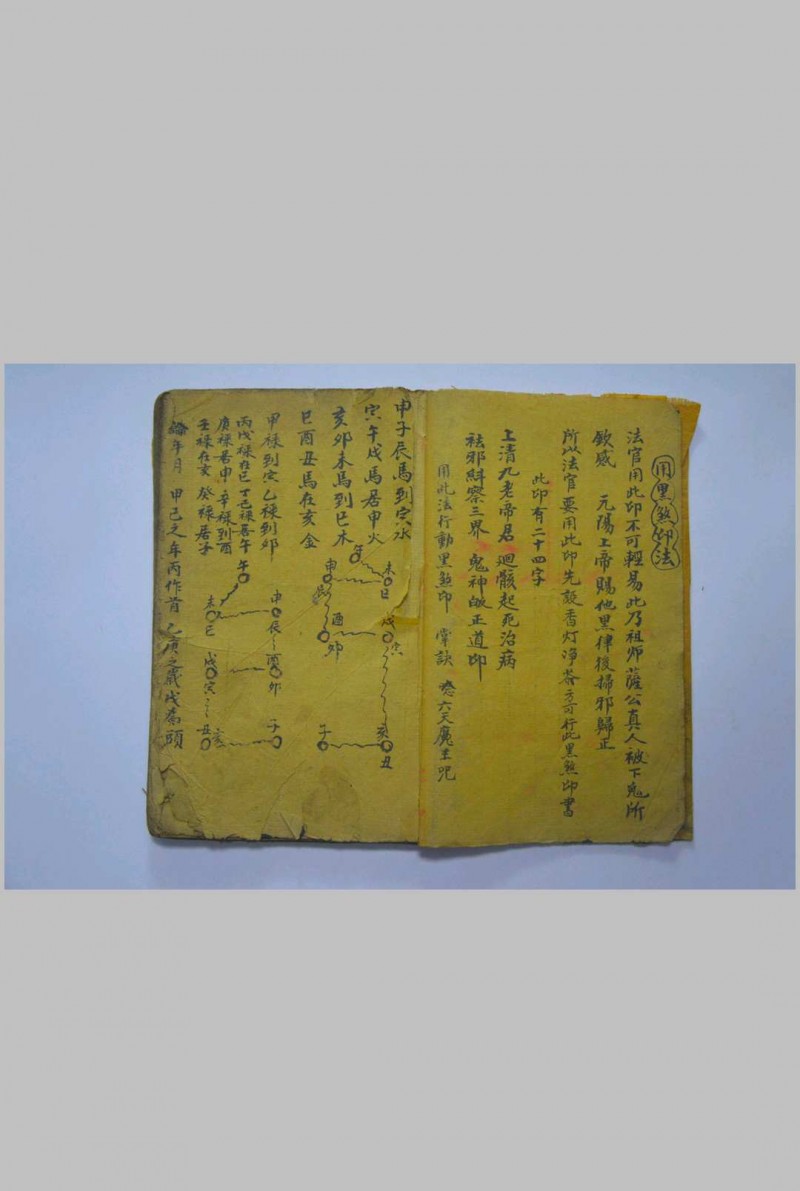 用黑煞印法
法官用此印不可輕易此乃祖師薩公真人被下鬼所
欽感 元陽上帝賜他黑律後掃邪歸正
所以法官要用此印先設香灯净茶方可行此黑煞印書
此印有二十四字
上清九老帝君 廻骸起死治病
袪邪糾察三界 鬼神皈正道印
用此法行動黑煞印 掌訣 唸六天魔王咒
申子辰馬到寅水
寅午戌馬居申火
亥卯未馬到巳木
巳酉丑馬在亥金
午
未
巳
申
辰
戌
寅
酉
卯
亥
丑
子
甲祿到寅乙祿到卯
丙戊祿在巳丁己祿居午
庚祿居申辛祿到酉
壬祿在亥 癸祿居子
午
申
辰
未
巳
酉
卯
戌
寅
子
亥
丑
年月 甲己之年丙作首 乙庚之歲戊為頭